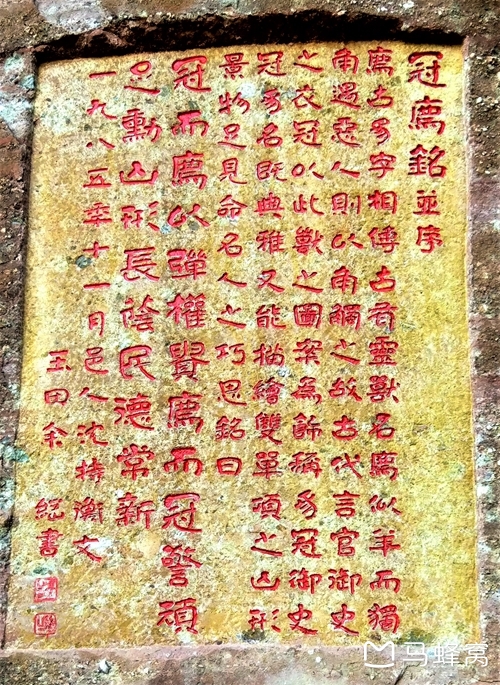 冠廌銘並序
廌古豸字相傳古有靈獸名廌似羊而獨
角遇惡人則以角觸之故古代言官御史
之衣冠以此獸之圖案為飾稱豸冠御史
冠豸名既典雅又能描繪雙單項之山形
景物足見命名人之巧思銘曰
冠而廌以彈權賢廌而冠警頑
足勳山形長蔭民德常新
一九八五年十一月邑人沈持衡文
玉田余書
马蜂窝